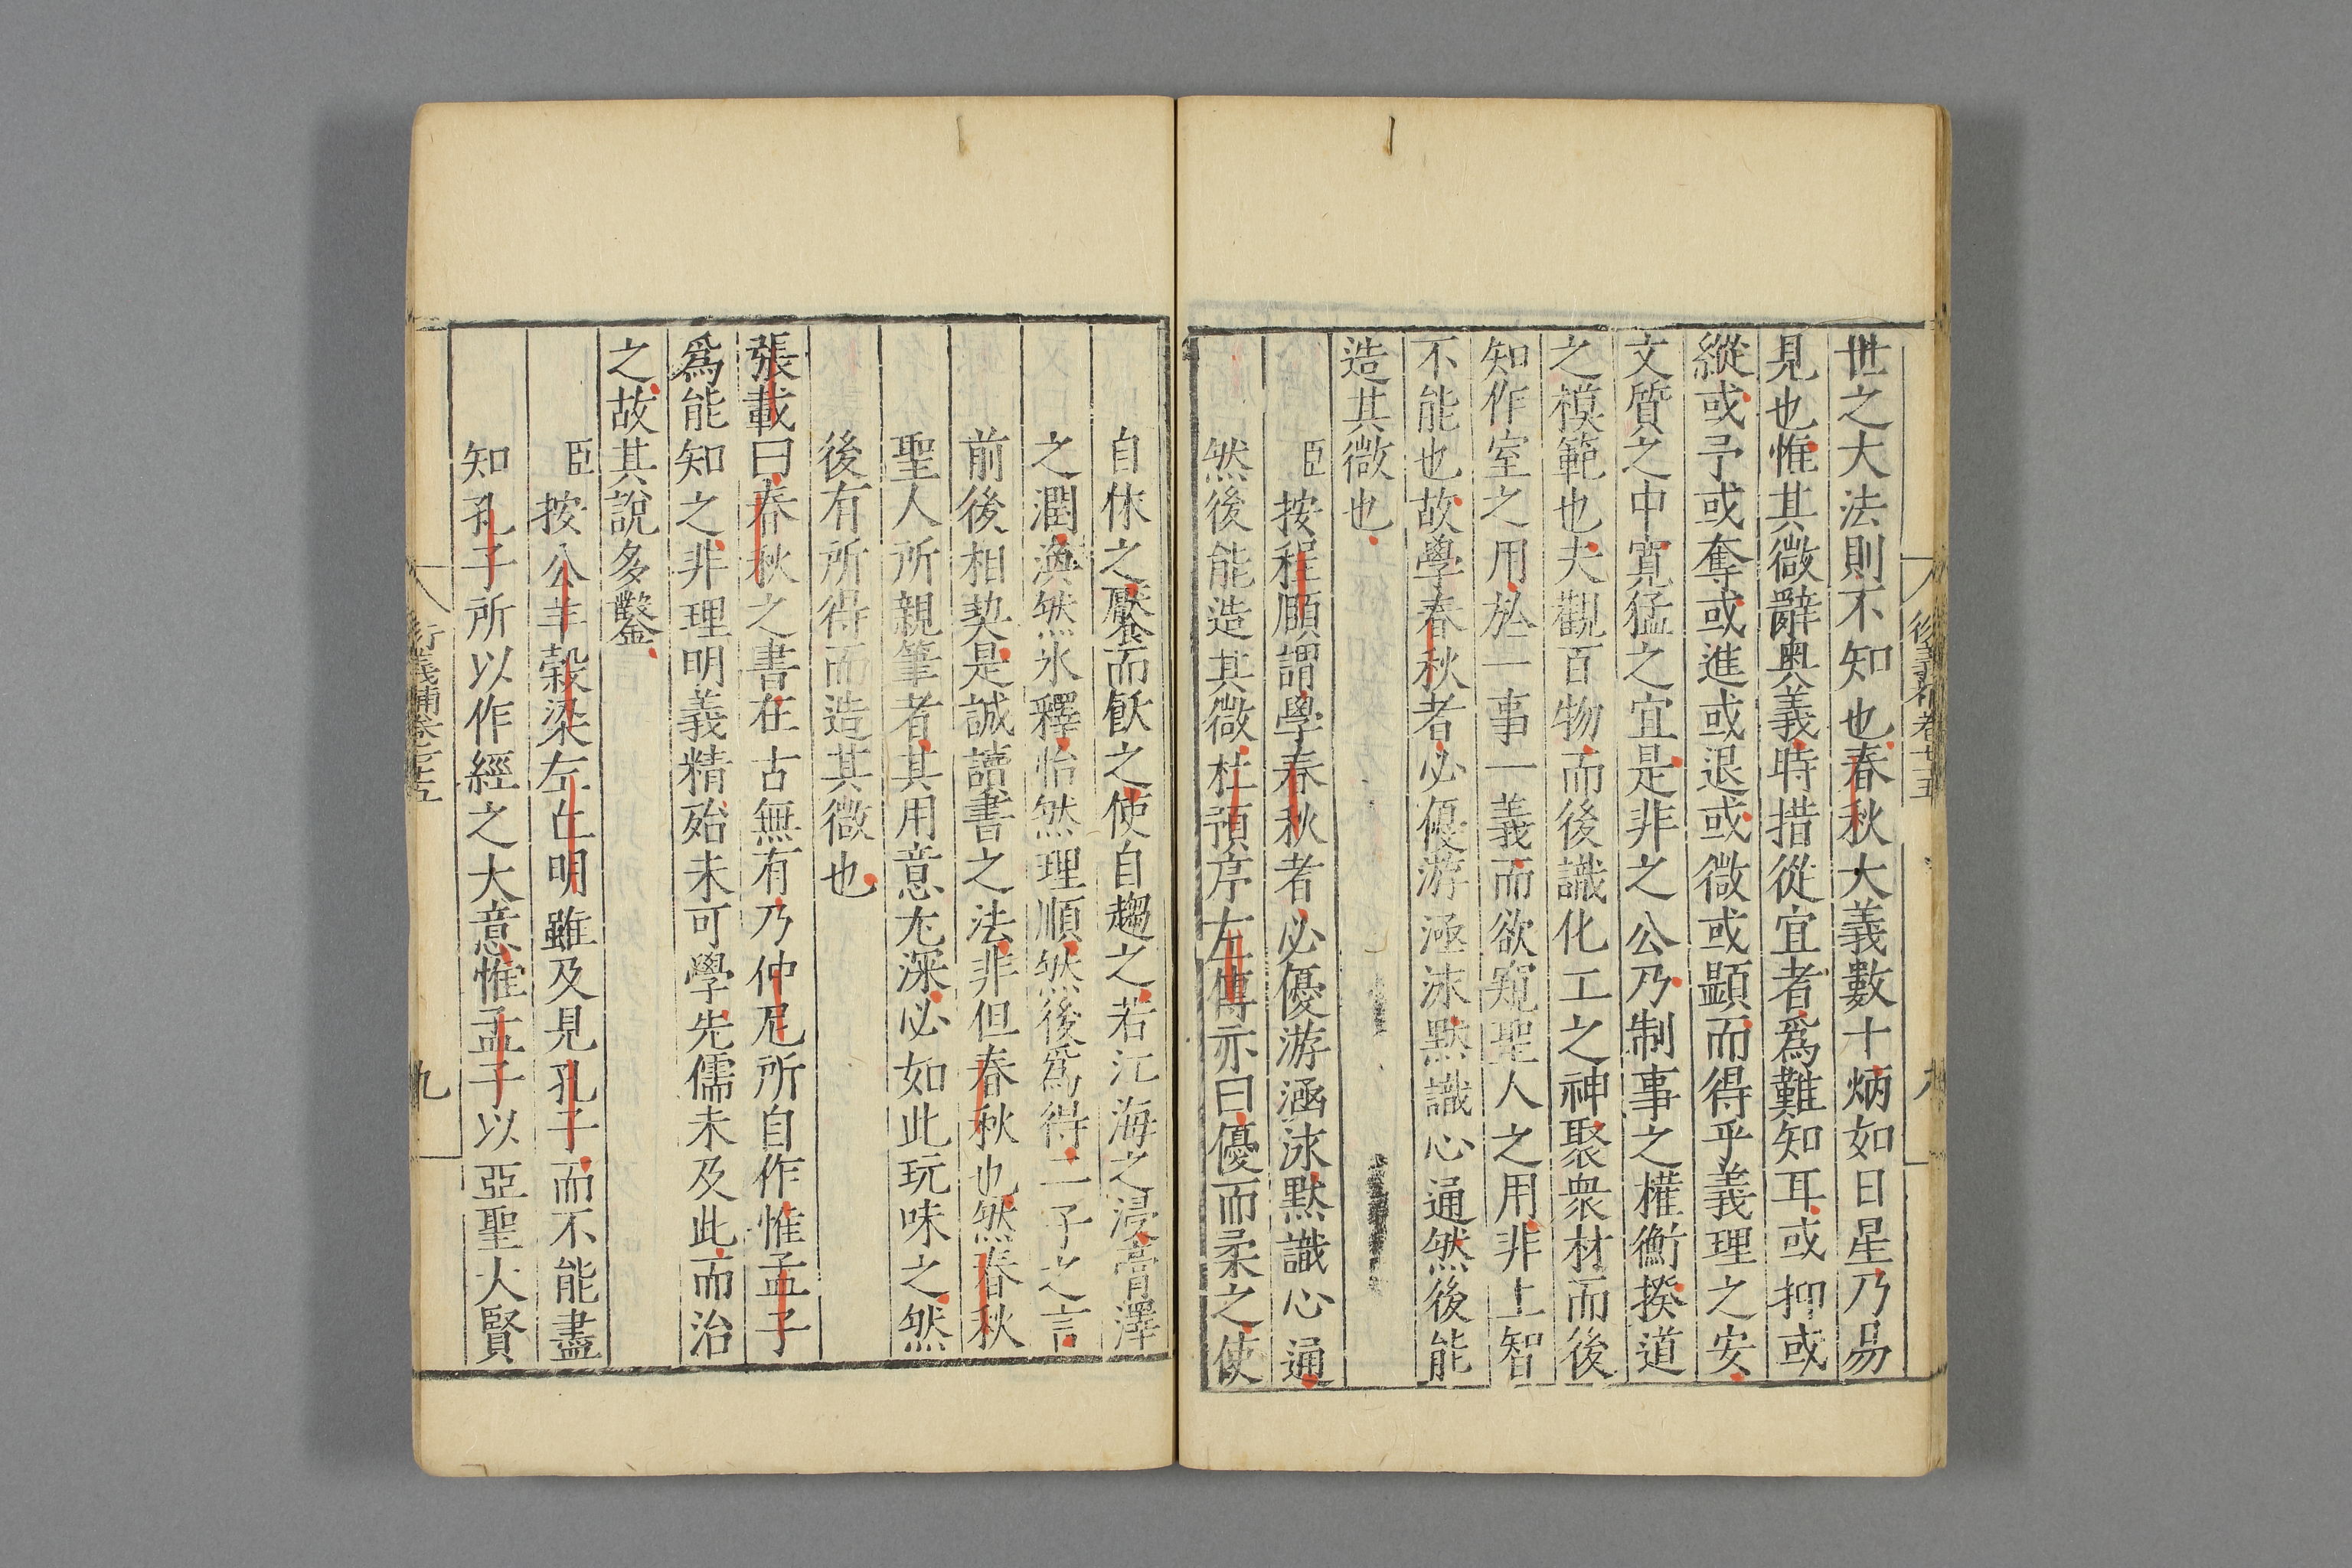 世之大法則不知也春秋大義數十炳如日星乃易
見也惟其微辭奥義時措從宜者爲難知耳或抑或
縱或予或奪或進或退或微或顯而得乎義理之安
文質之中寛猛之宜是非之公乃制事之權衡揆道
之模範也夫觀百物而後識化工之神聚衆材而後
知作室之用於一事一義而欲窺聖人之用非上智
不能也故學春秋者必優游涵泳默識心通然後能
造其微也
臣按程頤謂學春秋者必優游涵泳默識心通
然後能造其微杜預序左傳亦曰優而柔之使
自休之饜而飫之使自趨之若江海之浸膏澤
之潤渙然氷釋怡然理順然後爲得二子之言
前後相契是誠讀書之法非但春秋也然春秋
聖人所親筆者其用意尤深必如此玩味之然
後有所得而造其微也
張載曰春秋之書在古無有乃仲尼所自作惟孟子
爲能知之非理明義精殆未可學先儒未及此而治
之故其說多鑿
臣按公羊穀梁左丘明雖及見孔子而不能盡
知孔子所以作經之大意惟孟子以亞聖大賢
衍義補卷七十五
九